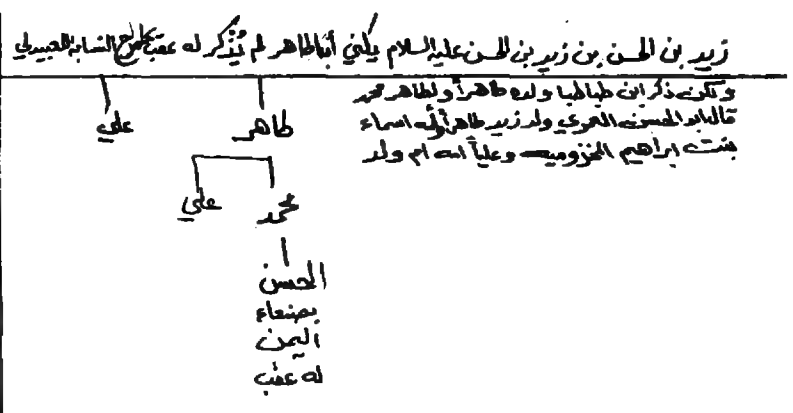 زيد بن الحسن بن زيد بن الحسن عليه السلام يكنى أبا طاهر لم يُذكر له عقب النسابة العبيدلي
ولكن ذكر ابن طباطبا ولده طاهراً ولطاهر محمد
قال ابو الحسن العمري ولد زيد طاهراً أمه اسماء
بنت ابراهيم المخزوميه وعلياً امه ام ولد
طاهر
علي
محمد
علي
الحسن
بصنعاء
اليمن
له عقب